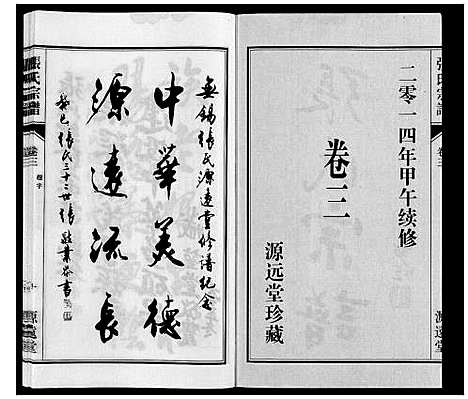 張氏宗譜
卷三
二零一四年甲午续修
卷三
源远堂珍藏
源遠堂
無錫張氏源遠堂修譜紀念
中華美德
源遠流長
癸巳張氏三十二世張
張氏宗譜
卷三
題字
源遠堂